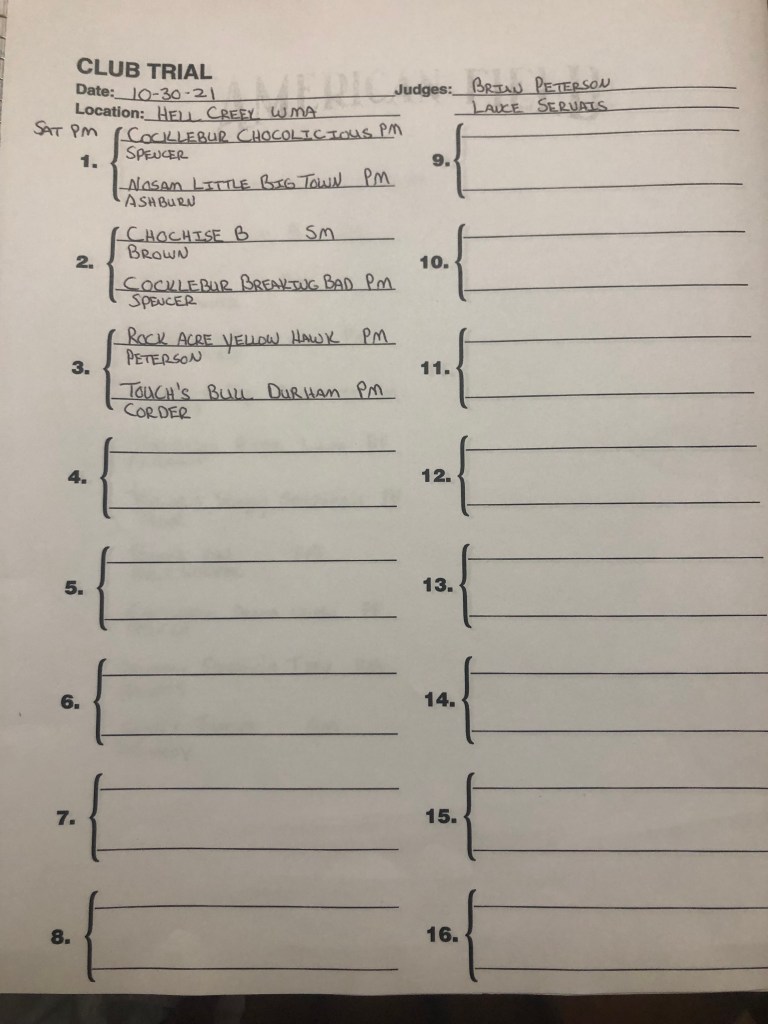 AMERICAN FIELD
CLUB TRIAL
Date: 10-30-21
Judges: BRIAN PETERSON
Location: HELL CREEY WMA
LANCE SERVAIS
SAT PM
1. COCKLEBUR CHOCOLICIOUS PM
SPENCER
NOSAM LITTLE BIG TOWN PM
ASHBURN
2. CHOCHISE B SM
BROWN
COCKLEBUR BREAKING BAD PM
SPENCER
3. ROCK ACRE YELLOW HAWK PM
PETERSON
TOUCH'S BULL DURHAM PM
CORDER
4.
5.
6.
7.
8.
9.
10.
11.
12.
13.
14.
15.
16.